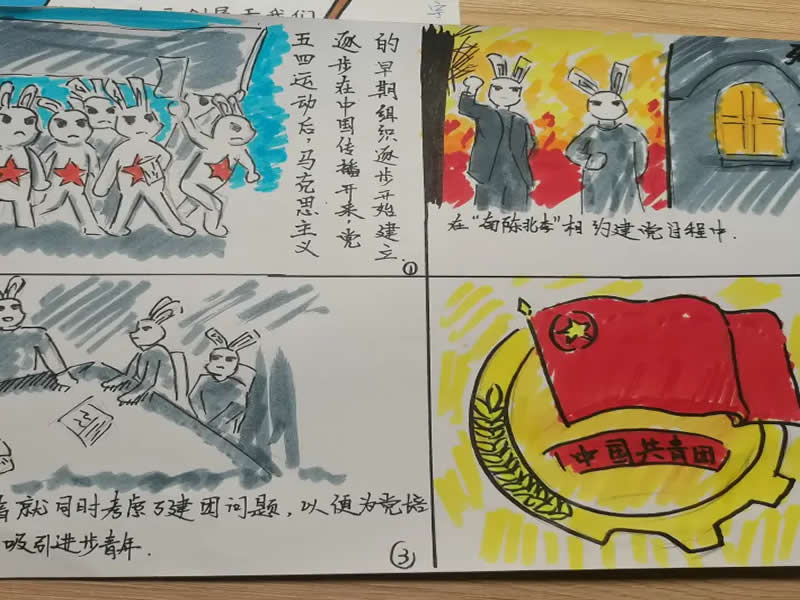 五四运动后,马克思主义
逐步在中国传播开来,党
的早期组织逐步开始建立.
①
在“南陈北李”相约建党日程中.
就同时考虑了建团问题,以便为党培
吸引进步青年.
③
中国共青团